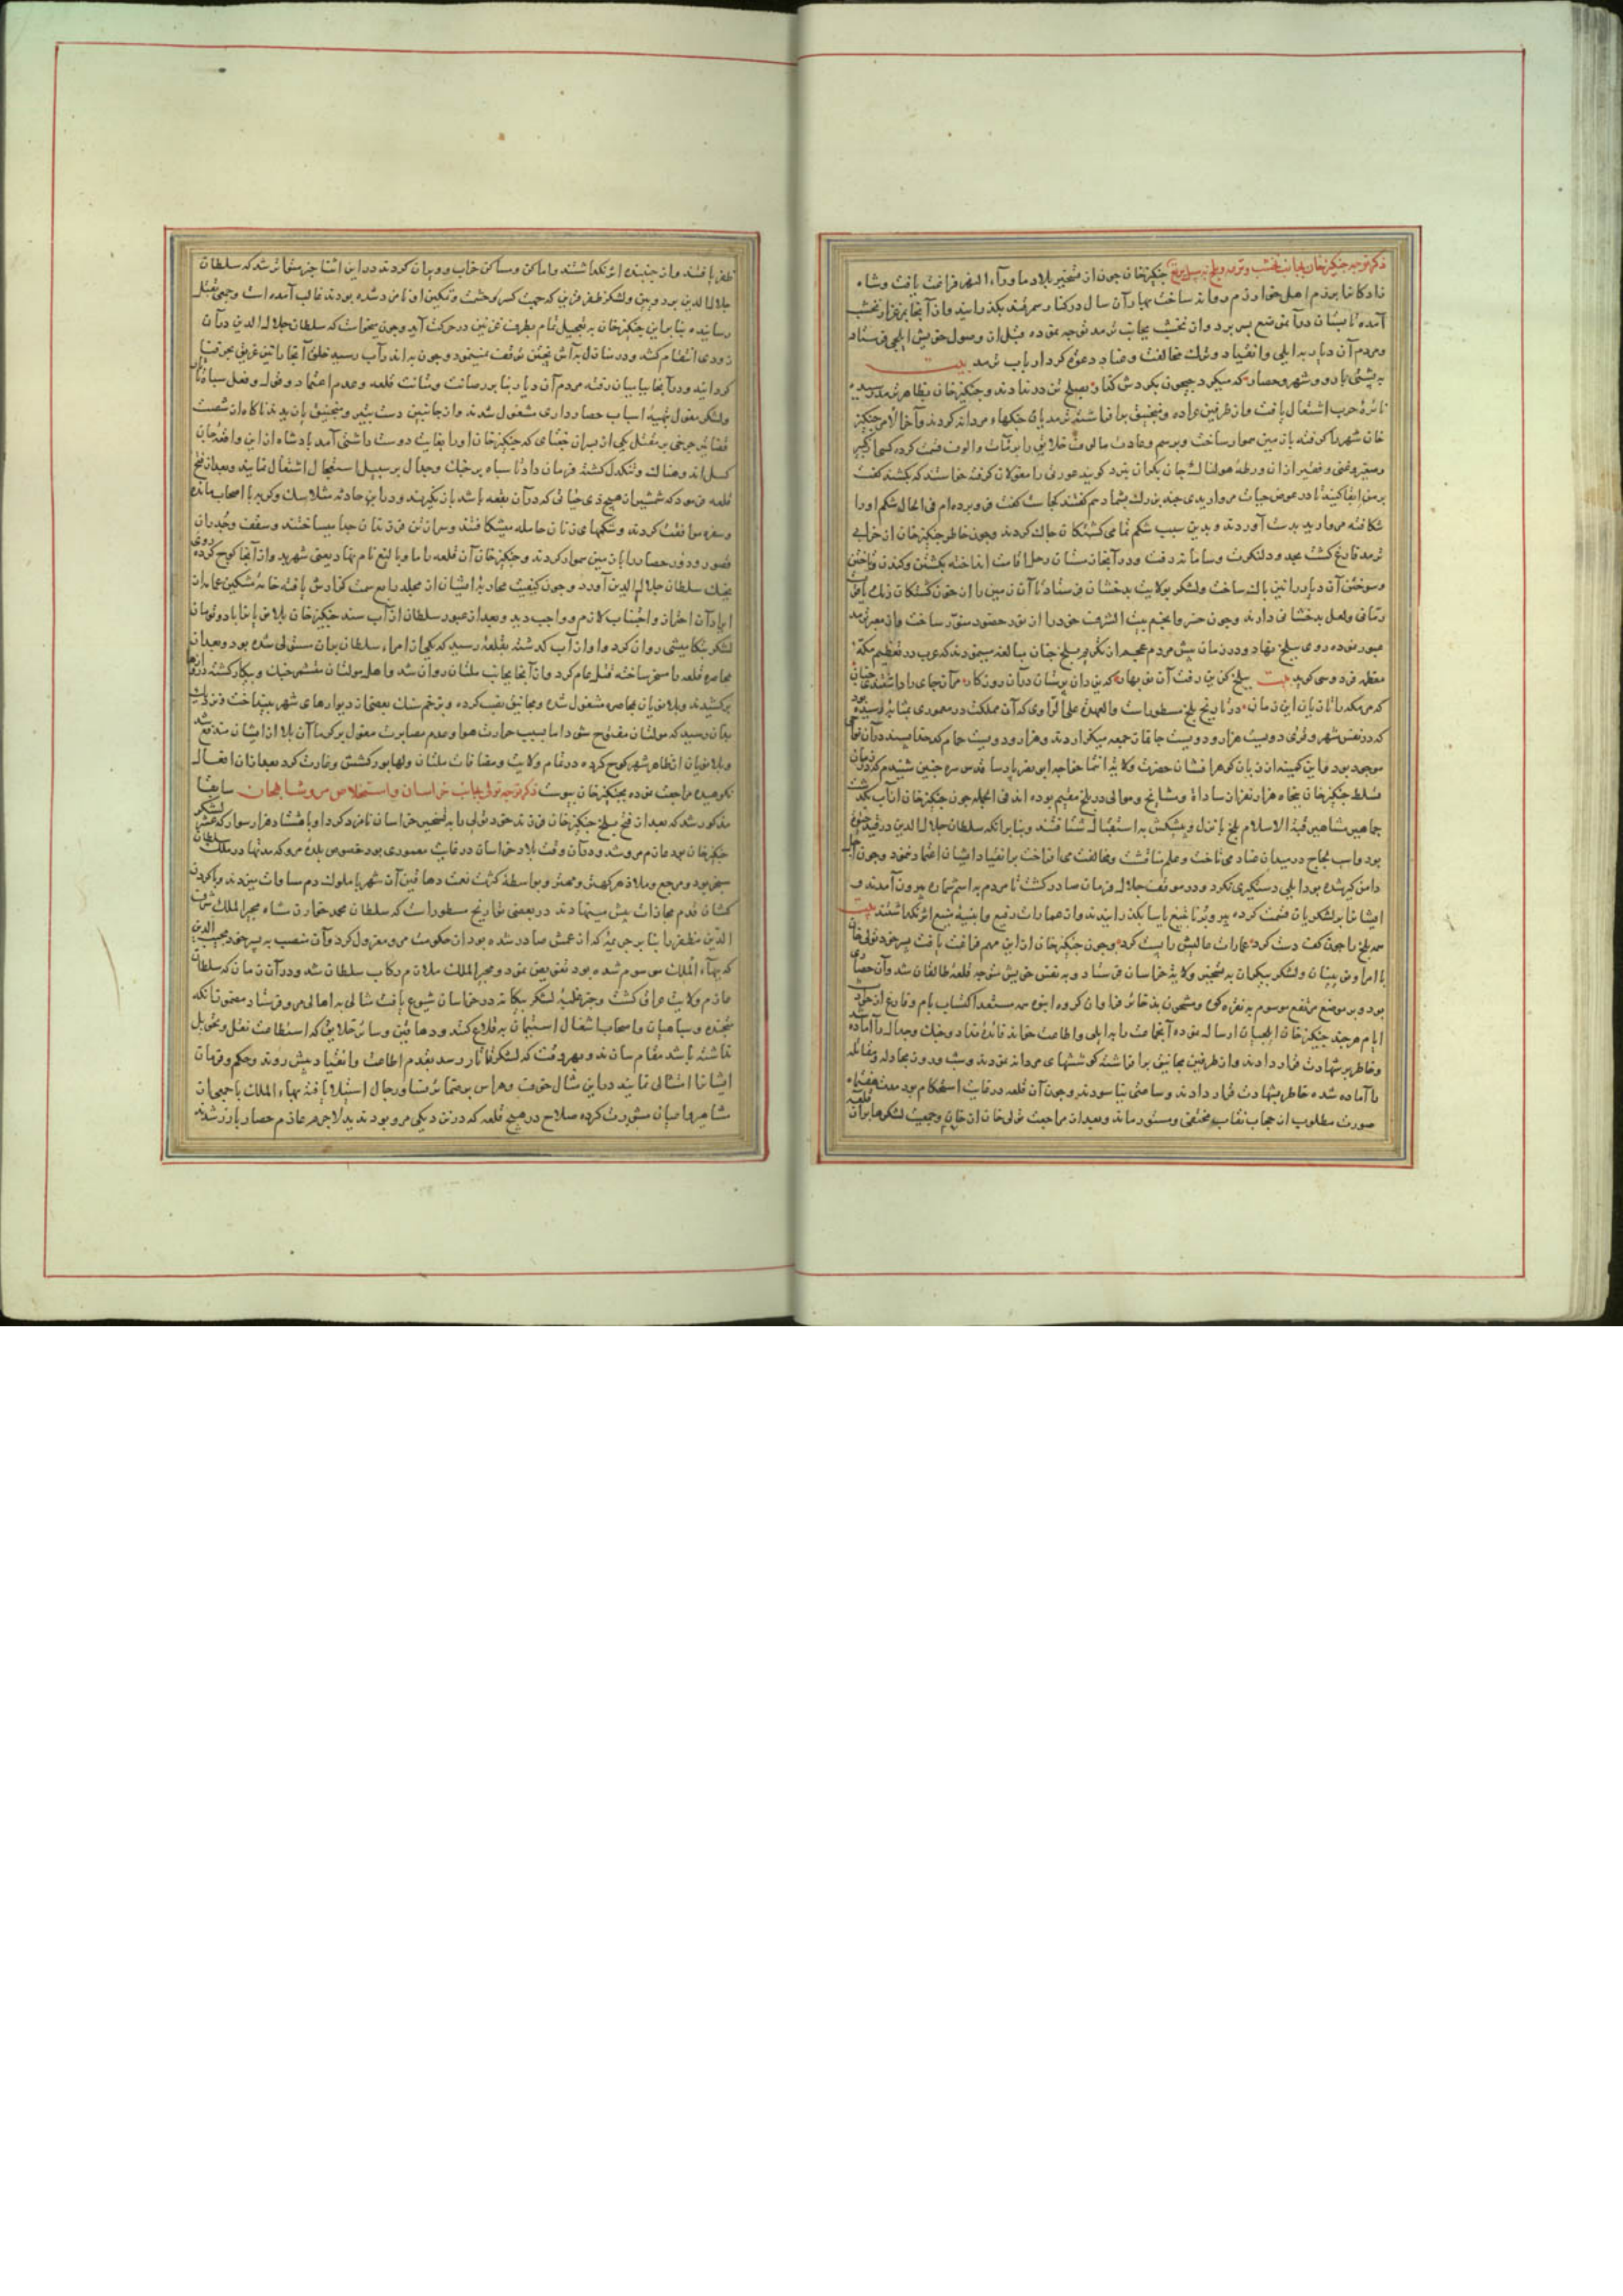 ذکر توجه جنکیزخان بجانب نخشب و ترمد و بلخ جنکیزخان چون از تسخیر بلاد ماوراء النهر فراغت یافت و شاه
زادکانرا برزم اهل خوارزم روانه ساخت بهار آن سال در کنار سمرقند بکذرانید و از آنجا بمرغزار نخشب
آمده تابستان در آن موضع بسر برد و از نخشب بجانب ترمد توجه نموده قبل از وصول خویش ایلچی فرستاد
و مردم آن دیار را به ایلی و انقیاد و ترک مخالفت و عناد دعوت کرد ارباب ترمد بیت
به پشتی بارو و شهر و حصار که میکرد جیحون بکردش کنار بصلح تن در ندادند و جنکیزخان بظاهر ترمد رسیده
نائرهٔ حرب اشتعال یافت و از طرفین عراده و منجنیق برافراشته ترمدیان جنکهاء مردانه کردند و آخر الامر جنکیز
خان شهر را کرفته با زمین هموار ساخت و برسم و عادت مالوف خلایق را بر مآت و الوف قسمت کرده کسی از کبیر
و صغیر و غنی و فقیر از آن ورطهٔ هولناک جان بکران نبرد کویند عورتی را مغولان کرفته خواستند که بکشند کفت
بر من ابقا کنید تا در عوض حیات مرواریدی چند بزرک بشما دهم کفتند کجاست کفت فرو برده ام فی الحال شکم او را
شکافته مروارید بدست آوردند و بدین سبب شکم تمامی کشتکان چاک کردند و چون خاطر جنکیزخان از خرابی
ترمد فارغ کشت بحدود لنکرت و سامان رفت و در آنجا زمستان رحل اقامت انداخته بکشتن و کندن و تاختن
و سوختن آن دیار را نیز پاک ساخت و لشکر بولایت بدخشان فرستاد تا آن زمین را از خون کشتکان
رمانی و لعل بدخشانی دارند و چون خسرو انجم بیت الشرف خود را از نور حضور منور ساخت و از معبر ترمد
عبور نموده روی ببلخ نهاد و در زمان پیش مردم عجم از تکریم بلخ چنان مبالغه مینمودند که عرب در تعظیم مکهٔ
معظمه فردوسی کوید بیت ببلخ کزین رفت آن نوبهار که یزدان پرستان در آن روزکار مر آن جای را داشتندی چنان
که مر مکه را تازیان این زمان در تاریخ بلخ مسطورست و العهدة علی الراوی که آن مملکت در معموری بمثابهٔ رسیده
که در نفس شهر و قری دویست هزار و دویست جا نماز جمعه میکزاردند و هزار و دویست حمام
موجود بود و این کمینه از زبان کوهر افشان حضرت ولایة انتما خواجه ابو نصر پارسا قدس سره چنین شنیدم که در زمان
تسلط جنکیزخان پنجاه هزار نفر از سادات و مشایخ و موالی در بلخ مقیم بوده اند فی الجمله چون جنکیزخان از آب بکذشت
جماهیر مشاهیر قبة الاسلام بلخ با نزل و پیشکش به استقبال شتافتند و بنا بر آنکه سلطان جلال الدین در قید حیوة
بود و اسب لجاج در میدان عناد می تاخت و علم منافست و مخالفت می افراخت بر انقیاد ایشان اعتماد ننمود و چون اجل
دامن کیر شده بود ایلی دستکیری نکرد و در موقف جلال فرمان صادر کشت تا مردم به اسم شماره بیرون آمدند و
ایشانرا بر لشکریان قسمت کرده پیر و برنا بتیغ یاسا بکذرانیدند و از عمارات رفیع و ابنیهٔ منیع اثر نکذاشتند بیت
سر بلخ را چون کف دست کرد عمارات عالیش را پست کرد و چون جنکیزخان از این مهم فراغت یافت پسر خود تولی خان
با امرا و نوینان و لشکر بیکران به تسخیر ولایة خراسان فرستاد و به نفس خویش متوجه قلعهٔ طالقان شد و آن حصاری
بود بر موضع مرتفع موسوم به نقره کوه و مشحون بذخائر فراوان کروه انبوه
ایام هر چند جنکیزخان ایلچیان ارسال نموده آنجماعت را به ایلی و اطاعت خواند فائده نداد و جنک و جدال را آماده
و خاطر بر شهادت قرار دادند و از طرفین مجانیق برافراشته کوششهای مردانه نمودند و شب و روز بمجادله و مقاتله
را آماده شده خاطر بشهادت قرار دادند و ساعتی نیاسودند و چون آن قلعه در غایت استحکام بود مدت هفتماه
صورت مطلوب از حجاب نقاب مختفی و مستور ماند و بعد از مراجعت تولی خان از خراسان و جمعیت لشکرها بر آن قلعه
ظفر یافتند و از جنبنده اثر نکذاشتند و اماکن و مساکن خراب و ویران کردند در این اثنا خبر متواتر شد که سلطان
جلال الدین بر دو نوین و لشکر ظفر قرین که جهت کسر کوخت و تمکین او نامزد شده بودند غالب آمده است و جمعی بقتل
رسانیده بنا بر این جنکیزخان به تعجیل تمام بطرف غزنین در حرکت آمد و چون میخواست که سلطان جلال الدین در آن
زودی انتقام کشد و در منازل به آش پختن توقف نمینمود و چون به اندرآب رسید خلق آنجا را تیغ غریق بحر فنا
کردانید و در آنجا ببامیان رفته مردم آن دیار بنا بر رصانت و متانت قلعه و عدم اعتماد بر قول و فعل سپاه تاتار
و لشکر مغول تهیهٔ اسباب حصار داری مشغول شدند و از جانبین دست به تیر و منجنیق یازیدند ناکاه از شصت
قضا تیر چرخی بر مقتل یکی از پسران جغتای که جنکیزخان او را بغایت دوست داشتی آمد پادشاه از این واقعهٔ جان
کسل اندوهناک و تنکدل کشته فرمان داد تا سپاه بر جنک و جدال بر سبیل استعجال اشتغال نمایند و بعد از فتح
قلعه فرمود که شمشیر از هیچ ذی حیاتی که در آن بقعه باشد باز نکیرند و در این حادثه مثلا سک و کربه با اصحاب مانده
و سفره موافقت کردند و شکمهای زنان حامله میشکافتند و سر از تن فرزندان جدا میساختند و سقف و جدران
قصور و دور حصار را با زمین هموار کردند و جنکیزخان آن قلعه را ماو بالیغ نام نهاد یعنی شهر بد و از آنجا کوچ کرده روی
بجنک سلطان جلال الدین آورد و چون کیفیت محاربهٔ ایشان از مجلد رابع سمت کذارش یافته خامهٔ مشکین عمامه از
ایراد آن احتراز و اجتناب لازم و واجب دید و بعد از عبور سلطان از آب سند جنکیزخان بلا نویان را با دو تومان
لشکر بتکامیشی روان کرد و او از آب کذشته بقلعهٔ رسید که یکی از امراء سلطان بر آن مستولی شده بود و بعد از
محاصره قلعه را مسخر ساخته قتل عام کرد و از آنجا بجانب ملتان روان شد و اهل مولتان متشمر جنک و پیکار کشته دروازها
برکشیدند و بلا نویان بمحاصره مشغول شده و مجانیق نصب کرده و بزخم سنک بعضی از دیوارهای شهر بینداخت و نزدیک
بدان رسید که مولتان مفتوح شود اما بسبب حرارت هوا و عدم مصابرت مغول بر کرما آن بلا از ایشان مندفع شد
و بلا نویان از ظاهر شهر کوچ کرده در تمام ولایت و مضافات ملتان و لهاور کشش و غارت کرد بعد از آن افعال
نکوهیده مراجعت نموده بجنکیزخان پیوست ذکر توجه تولی بجانب خراسان و استخلاص مرو شاهجان سابقا
مذکور شد که بعد از فتح بلخ جنکیزخان فرزند خود تولی را به تسخیر خراسان نامزد کرد او با هشتاد هزار سوار که عشر لشکر
جنکیزخان بود عازم مرو شد و در آن وقت بلاد خراسان در غایت معموری بود خصوص بلدهٔ مرو که مدتها دار ملک سلطان
سنجر بود و مرجع و ملاذ هر کهتر و مهتر و بواسطهٔ کثرت نعمت دهاقین آن شهر با ملوک دم مساوات میزدند و با کردن
کشان قدم محاذات پیش مینهادند در بعضی تواریخ مسطورست که سلطان محمد خوارزمشاه مجیر الملک شرف
الدین مظفر را بنا بر جریمهٔ که از عمش صادر شده بود از حکومت مرو معزول کرد و آن منصب به پسر خود نجیب الدین
که بهاء الملک موسوم شده بود تفویض نمود و مجیر الملک ملازم رکاب سلطان شد و در آن زمان که سلطان
عازم ولایت عراق کشت و خبر غلبهٔ لشکر بیکانه در خراسان شیوع یافت مثالی به اهالی مرو فرستاد مضمون آنکه
متجنده و سپاهیان و اصحاب اشغال استیمان به قلاع کنند و دهاقین و سائر خلایق که استطاعت نقل و تحویل
نداشته باشند مقام سازند و بهر وقت که لشکر تاتار رسد بقدم اطاعت و انقیاد پیش روند و حکم و فرمان
ایشانرا امتثال نمایند در این مثال خوف و هراس بر ضمائر نساء و رجال استیلا یافته بهاء الملک با جمعی از
مشاهیر و اعیان مشورت کرده صلاح در هیچ قلعه که در نزدیکی مرو بود ندید لاجرم عازم حصار یازر شدند